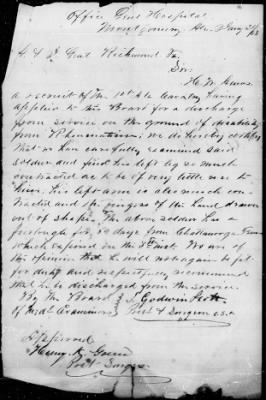 Office Genl Hospital
Montgomery Ala. Jany 21/63
A & I. Genl Richmond Va.
Sir:
H. W.
a recruit of the 10th Ala Cavalry having
applied to this Board for a discharge
from service on the ground of disability
from Rheumatism, we do hereby certify
that we have carefully examined said
soldier and find his left leg so much
contracted as to be of very little use to
him. His left arm is also much con-
tracted and the fingers of the hand drawn
out of shape. The above soldier has a
furlough for days from Chattanooga Tenn
which expired on the inst. We are of
the opinion that he will not again be fit
for duty and respectfully recommend
that he be discharged from the service.
By the Board J. Godwin Scott
of Medl Examiners Prest & Surgeon C.S.A.
Approved
Henry Green
Post Surgeon